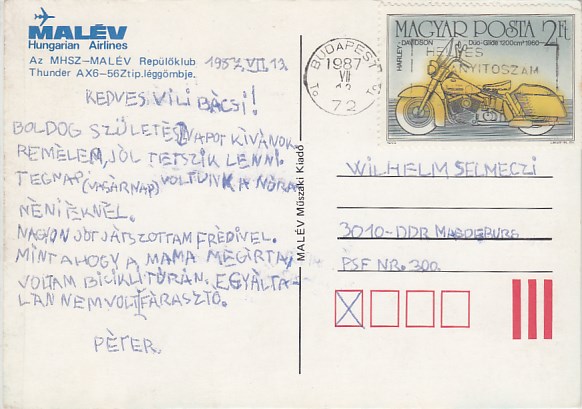 MALÉV
Hungarian Airlines
Az MHSZ–MALÉV Repülőklub
Thunder AX6–56Ztip. léggömbje.
1987. VII. 13.
KEDVES VILI BÁCSI!
BOLDOG SZÜLETÉSNAPOT KÍVÁNOK
REMÉLEM, JÓL TETSZIK LENNI.
TEGNAP (VASÁRNAP) VOLTUNK A NÓRA
NÉNIÉKNÉL.
NAGYON JÓT JÁTSZOTTAM FRÉDIVEL.
MINT AHOGY A MAMA MEGÍRTA,
VOLTAM BICIKLITÚRÁN. EGYÁLTA-
LÁN NEM VOLT FÁRASZTÓ.
PÉTER.
MALÉV Műszaki Kiadó
MAGYAR POSTA 2Ft
HARLEY-
DAVIDSON Duo-Glide 1200cm³ 1960
BUDAPEST
1987
VII
72
HELYES
WILHELM SELMECZI
3010-DDR MAGDEBURG
PSF NR. 300.